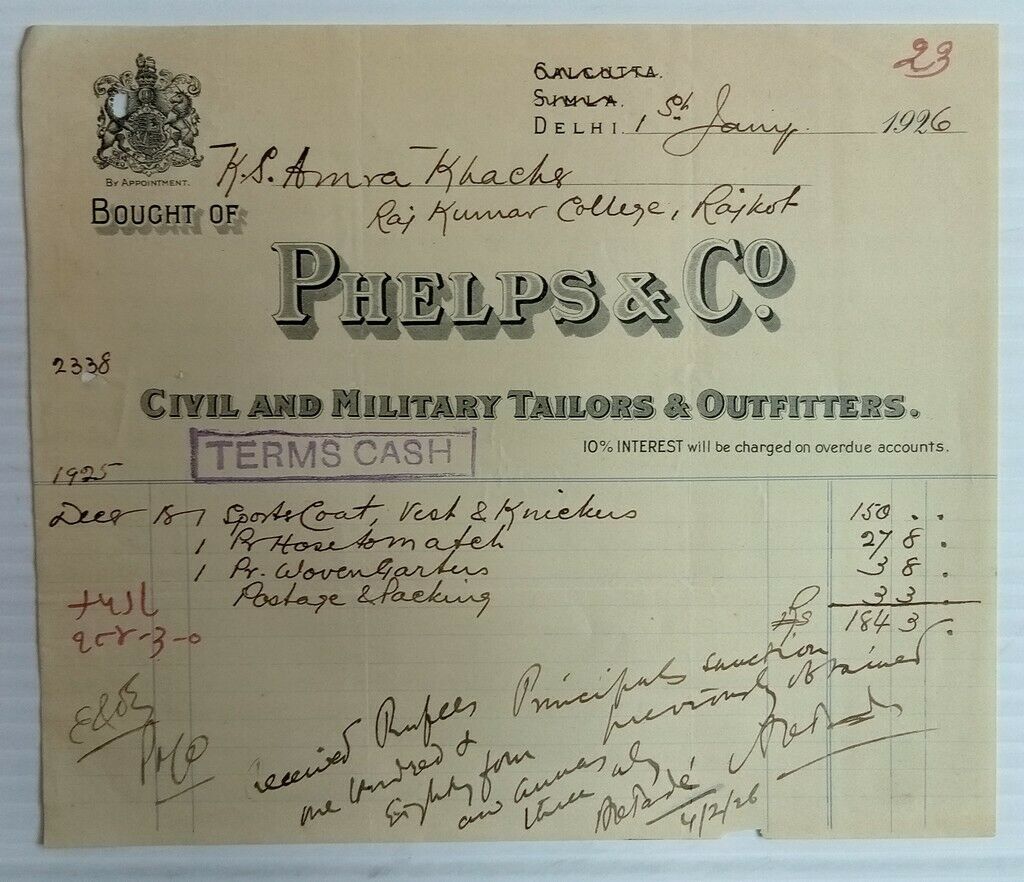 23
CALCUTTA.
SIMLA.
DELHI. 1st Jany. 1926
BY APPOINTMENT.
K.S. Amra Khacher
BOUGHT OF
Raj Kumar College, Rajkot
PHELPS & Co.
2338
CIVIL AND MILITARY TAILORS & OUTFITTERS.
TERMS CASH
10% INTEREST will be charged on overdue accounts.
1925
Decr 18 1 Sports Coat, Vest & Knickers 150 . .
1 Pr Hose to match 27 8 .
1 Pr. Woven Garters 3 8 .
Postage & Packing 3 3 .
Rs 184 3 .
E&OE
Received Rupees
one hundred &
Eighty four
and annas
three only
Principals sanction
previously obtained
4/2/26